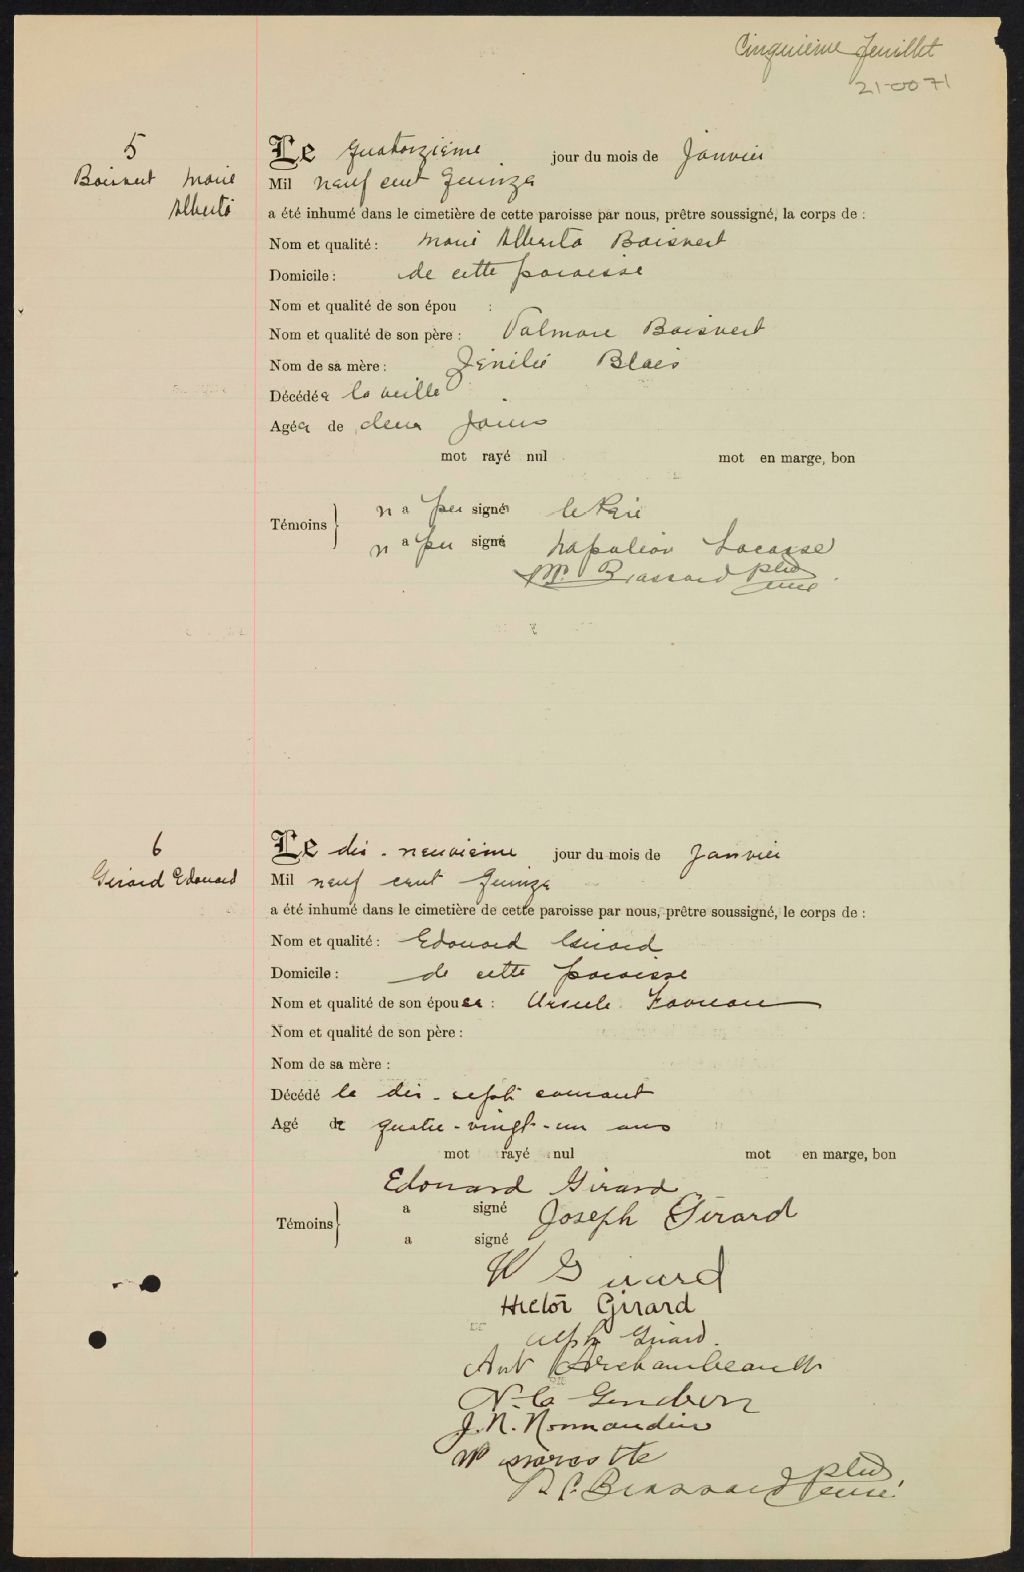 Cinquième feuillet
21-0071
5
Boisvert Marie
Alberta
Le quatorzième jour du mois de Janvier
Mil neuf cent quinze
a été inhumé dans le cimetière de cette paroisse par nous, prêtre soussigné, la corps de :
Nom et qualité : Marie Alberta Boisvert
Domicile : de cette paroisse
Nom et qualité de son épou :
Nom et qualité de son père : Valmore Boisvert
Nom de sa mère : Blais
Décédée la veille
Agée de deux jours
mot rayé nul mot en marge, bon
Témoins
n a pu signé le Père
n a pu signé Napoléon Lacasse
Brassard ptre
curé
6
Girard Edouard
Le dix-neuvième jour du mois de Janvier
Mil neuf cent quinze
a été inhumé dans le cimetière de cette paroisse par nous, prêtre soussigné, le corps de :
Nom et qualité : Edouard Girard
Domicile : de cette paroisse
Nom et qualité de son épouse : Ursule
Nom et qualité de son père :
Nom de sa mère :
Décédé le dix-sept courant
Agé de quatre-vingt-un ans
mot rayé nul mot en marge, bon
Edouard Girard
Témoins
a signé Joseph Girard
a signé
W Girard
Hector Girard
Alph Girard.
Ant Archambeault
Gendron
J. N. Normandin
Marcotte
Brassard ptre
curé